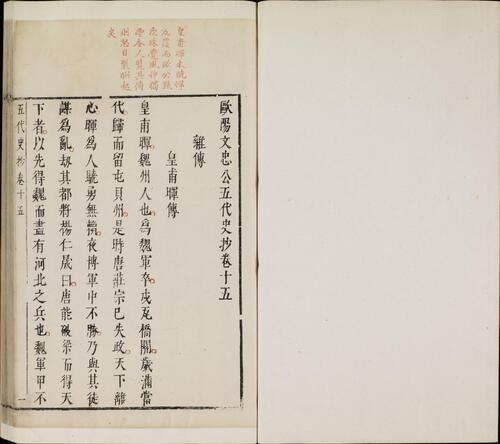 皇甫暉本驍悍
反覆而歐公點
次殊覺風神獨
令人覽其傳
矣
歐陽文忠公五代史抄卷十五
雜傳
皇甫暉傳
皇甫暉魏州人也為魏軍卒戍瓦橋關歲滿當
代歸而留屯貝州是時唐莊宗已失政天下離
心暉為人驍勇無賴夜博軍中不勝乃與其徒
謀為亂刼其都將楊仁晸曰唐能破梁而得天
下者以先得魏而盡有河北之兵也魏軍甲不
五代史抄卷十五
一